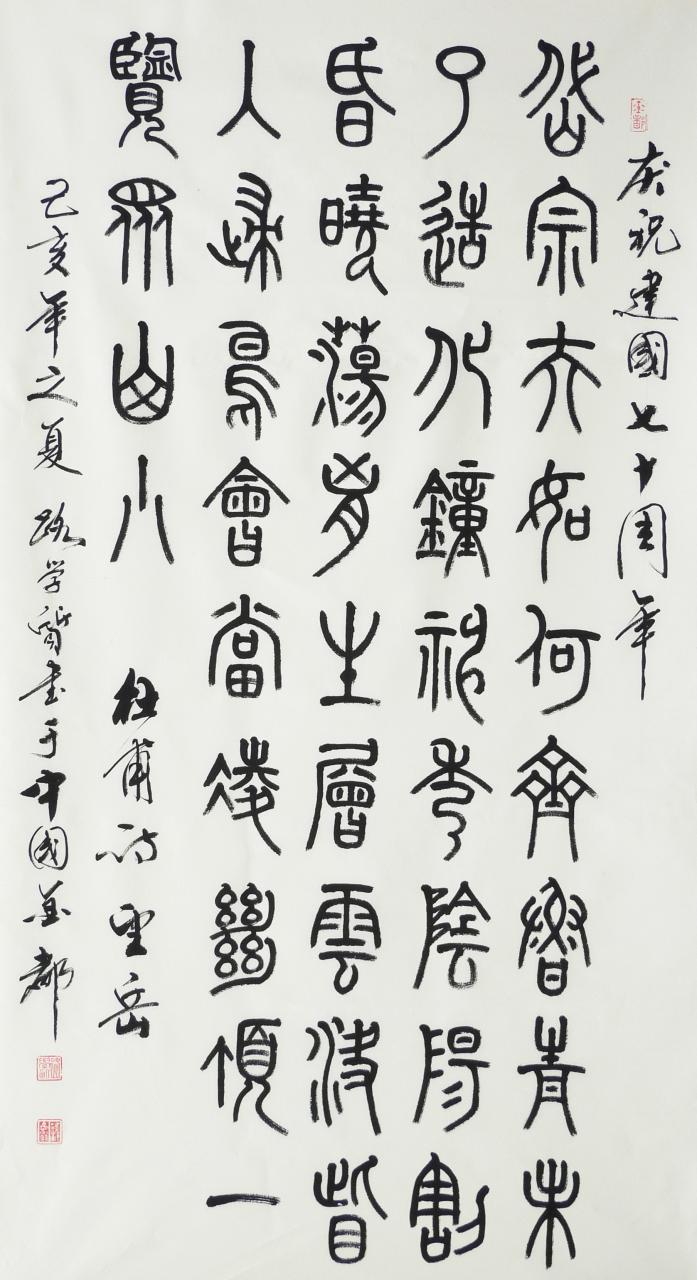 庆祝建國七十周年
岱宗夫如何齊魯青未
了造化鐘神秀陰陽割
昏曉蕩胸生層雲決眥
入歸鳥會當凌絕頂一
覽眾山小
杜甫诗望岳
己亥年之夏 路学賢書于中國金都